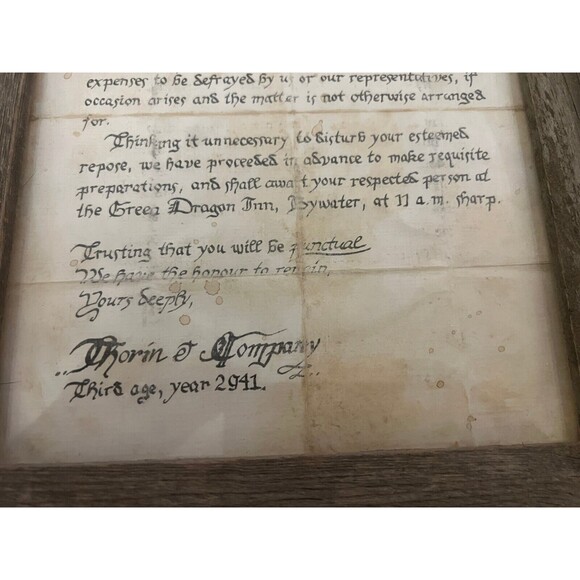 expenses to be defrayed by us or our representatives, if
occasion arises and the matter is not otherwise arranged
for.
Thinking it unnecessary to disturb your esteemed
repose, we have proceeded in advance to make requisite
preparations, and shall await your respected person at
the Green Dragon Inn, Bywater, at 11 a.m. sharp.
Trusting that you will be punctual
We have the honour to remain,
Yours deeply,
Thorin & Company
Third age, year 2941.